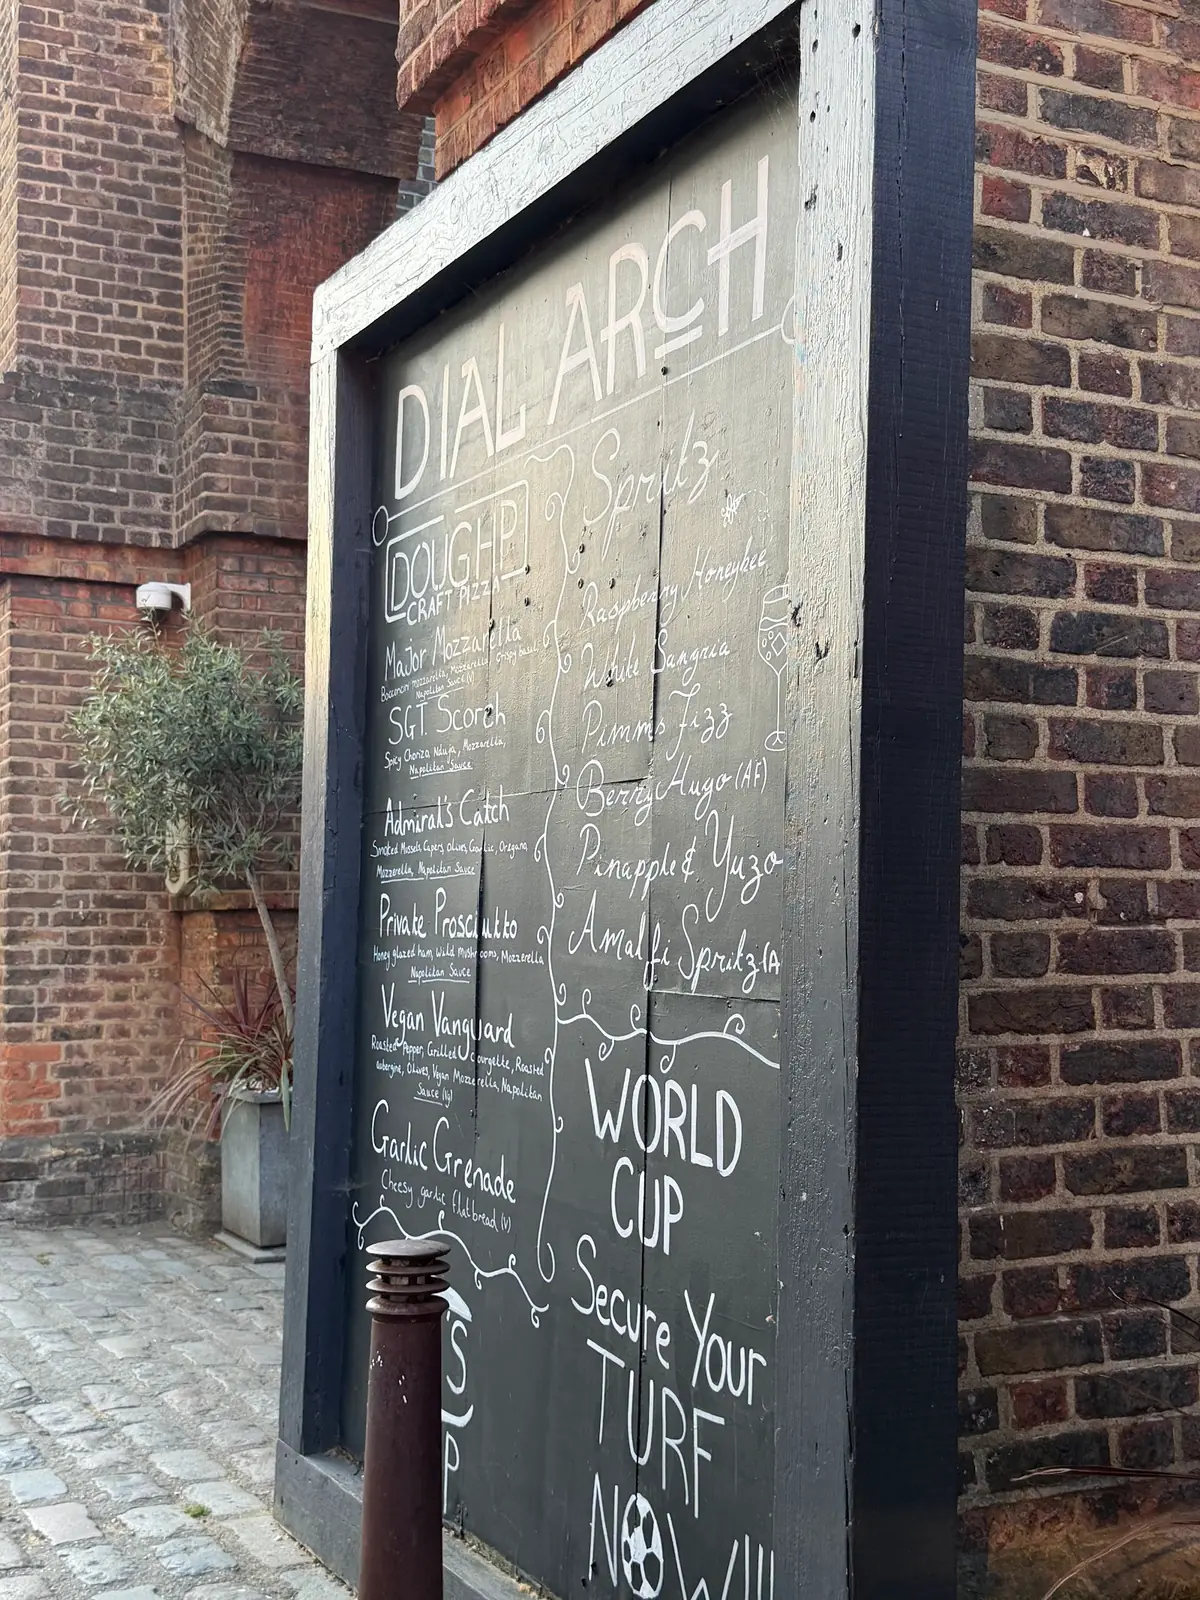 DIAL ARCH
DOUGH P
CRAFT PIZZA
Major Mozzarella
Bocconcini mozzarella, Mozzarella, Crispy basil
Napolitan Sauce (V)
SGT Scorch
Spicy Chorizo, Nduja, Mozzarella,
Napolitan Sauce
Admiral's Catch
Smoked Mussels, Capers, Olives, Garlic, Oregano
Mozzerella, Napolitan Sauce
Private Prosciutto
Honey glazed ham, Wild Mushrooms, Mozzerella
Napolitan Sauce
Vegan Vanguard
Roasted Pepper, Grilled Courgette, Roasted
aubergine, Olives, Vegan Mozzerella, Napolitan
Sauce (Vg)
Garlic Grenade
Cheesy garlic flatbread (V)
S
P
Spritz
Raspberry Honeybee
White Sangria
Pimms Fizz
Berry Hugo (AF)
Pinapple & Yuzo
Amalfi Spritz (A
WORLD
CUP
Secure Your
TURF
NOW!!!